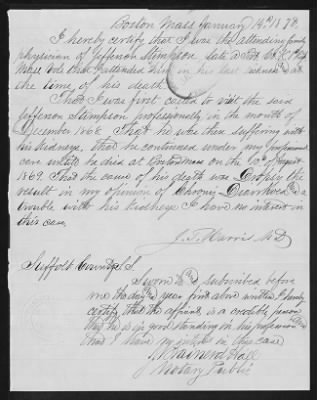 Boston Mass January 14th 1878.
I hereby certify that I was the attending family
physician of Jefferson Stimpson late
Mass Vols that I attended him in his last sickness & at
the time of his death.
That I was first called to visit the said
Jefferson Stimpson professionally in the month of
December 1868. That he was then suffering with
his kidneys, that he continued under my professional
care until he died at on the of August
1869. That the cause of his death was Dropsy the
result in my opinion of Chronic Diarrhoea and a
trouble with his kidneys I have no interest in
this case.
J. F. Harris M.D.
Suffolk County S.S.
Sworn to & subscribed before
me the day & year first above written I hereby
certify that the affiant is a credible person
that he is in good standing in his profession and
that I have no interest in this case
Hall
Notary Public